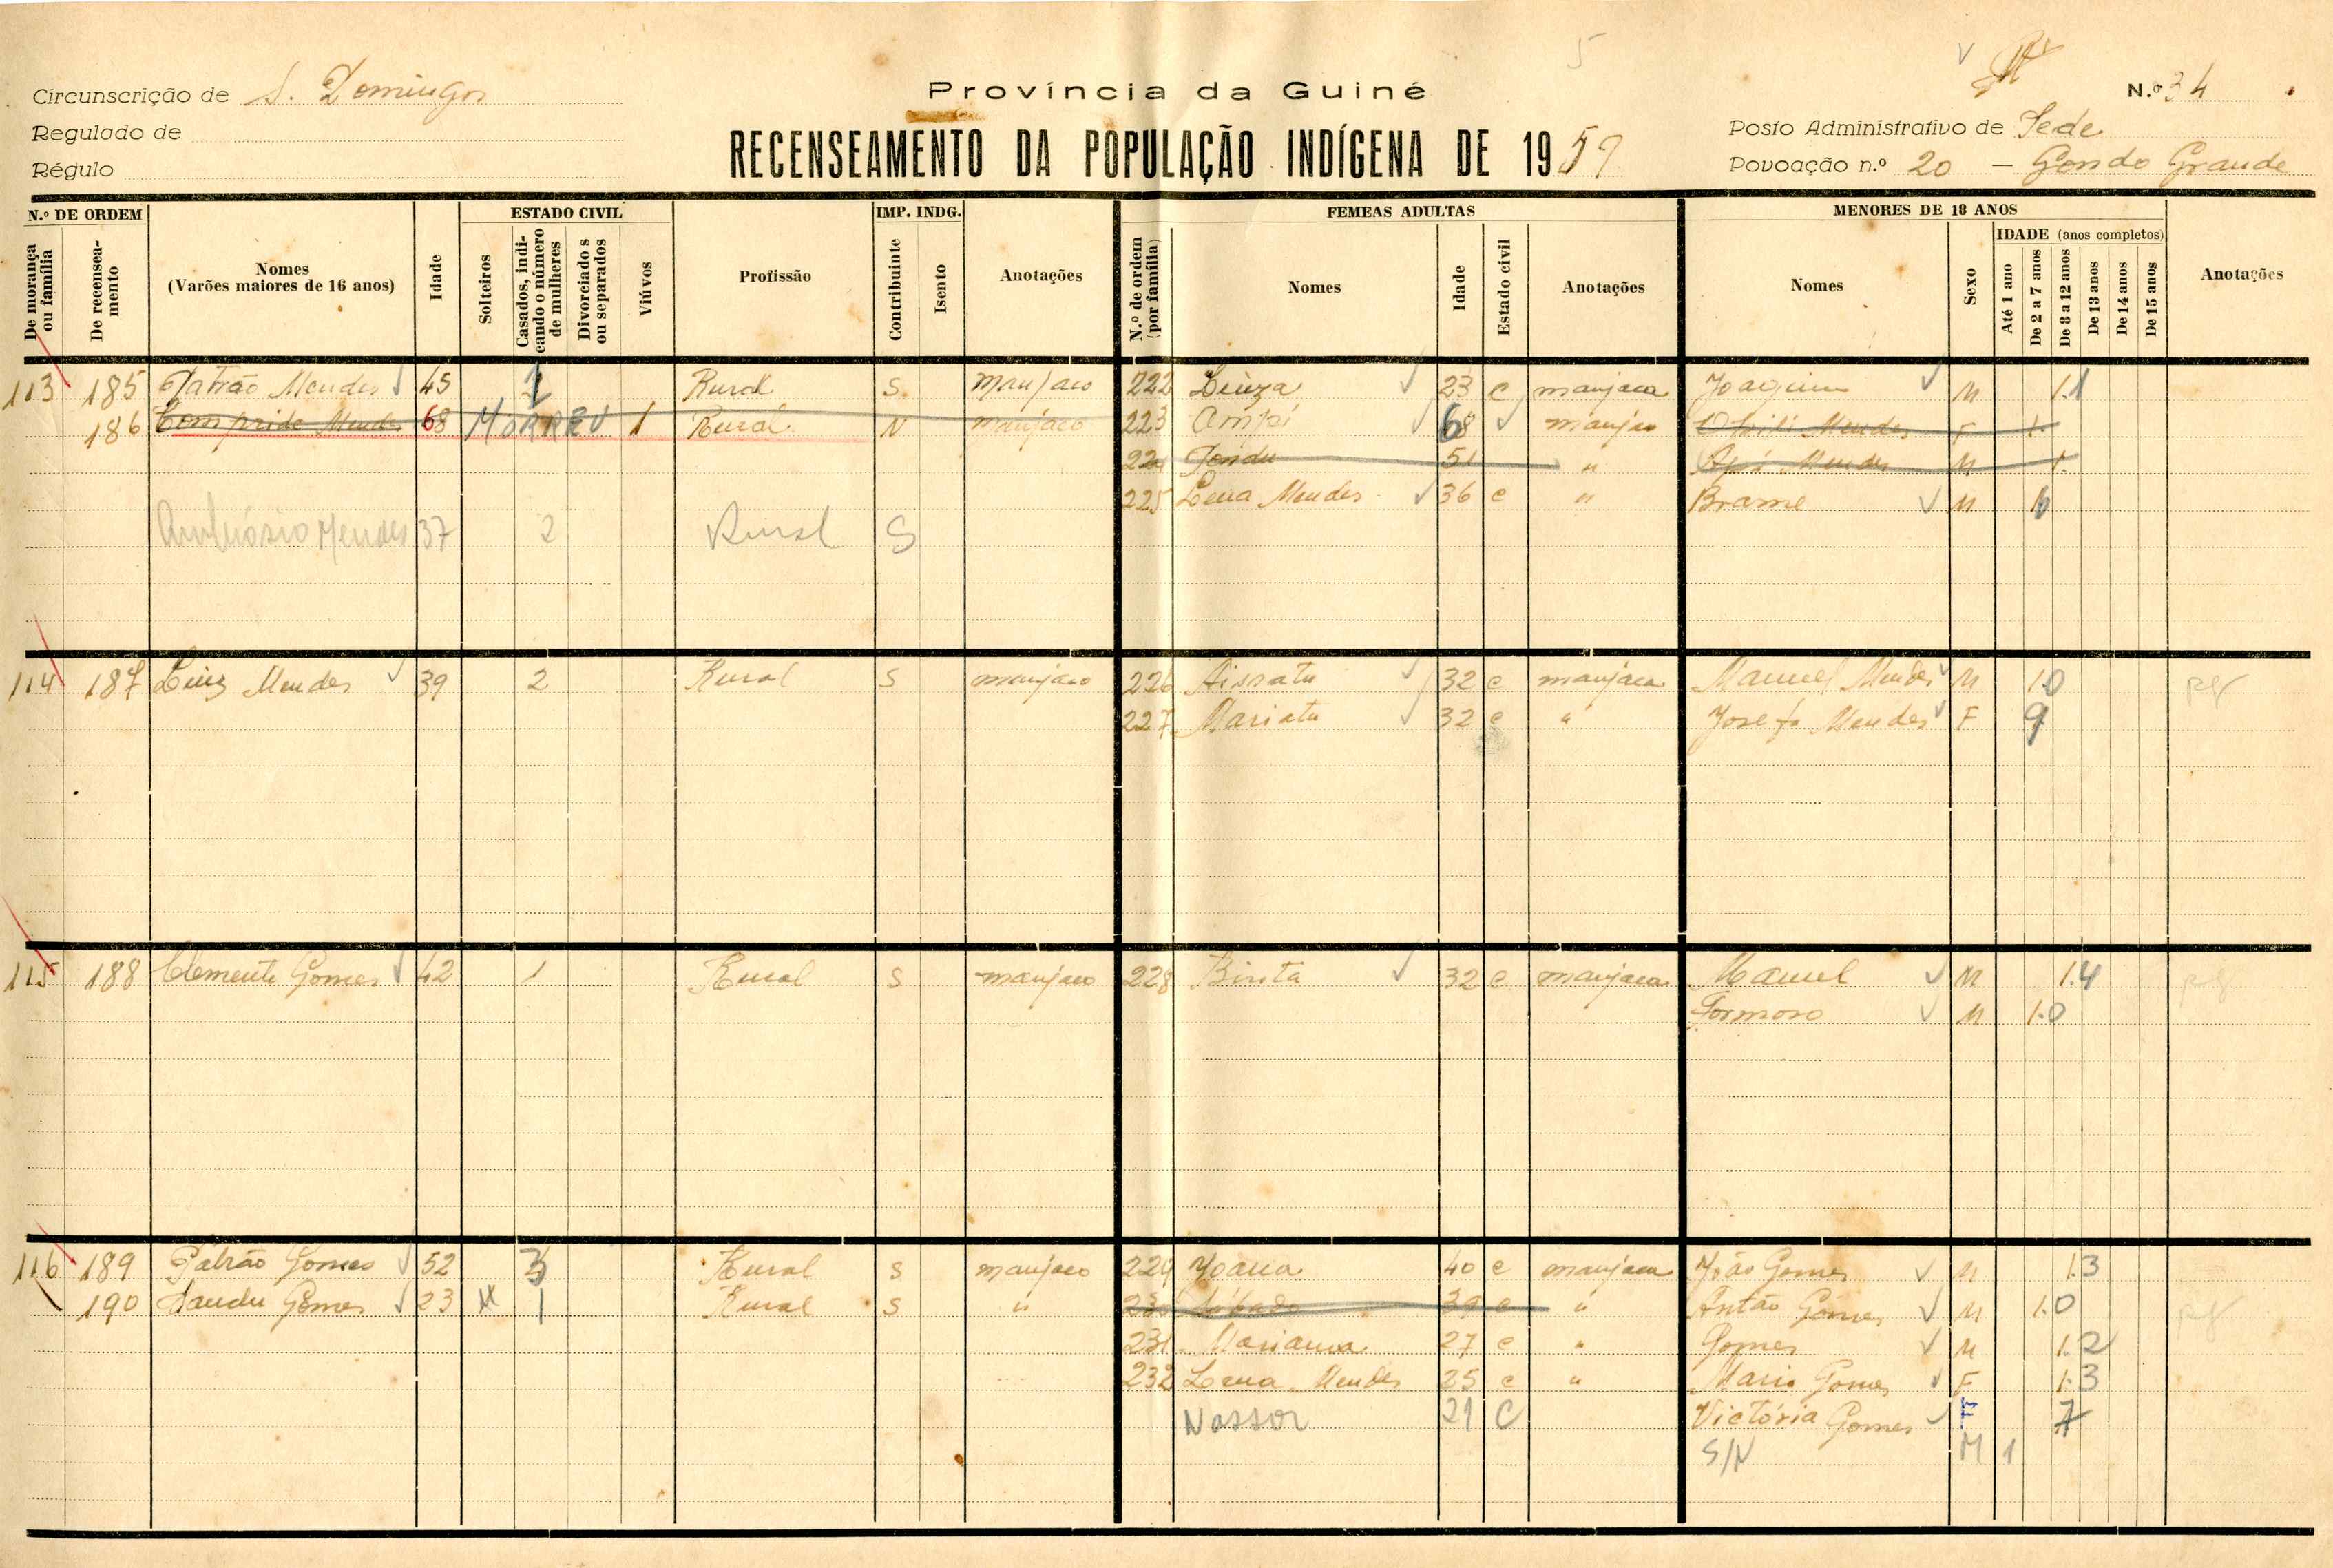 5
Circunscrição de S. Domingos
Província da Guiné
N.º 34
Regulado de
RECENSEAMENTO DA POPULAÇÃO INDÍGENA DE 1959
Posto Administrativo de Sede
Régulo
Povoação n.º 20 — Gendo Grande
N.º DE ORDEM
De morança ou família
De recenseamento
Nomes
(Varões maiores de 16 anos)
Idade
ESTADO CIVIL
Solteiros
Casados, indicando o número de mulheres
Divorciados ou separados
Viúvos
Profissão
IMP. INDG.
Contribuinte
Isento
Anotações
FEMEAS ADULTAS
N.º de ordem (por família)
Nomes
Idade
Estado civil
Anotações
MENORES DE 18 ANOS
Nomes
Sexo
IDADE (anos completos)
Até 1 ano
De 2 a 7 anos
De 8 a 12 anos
De 13 anos
De 14 anos
De 15 anos
Anotações
113 185 Patrão Mendes 45 Rural S manjaco 222 Luiza 23 c manjaca Joaquim M 1.1
186 Comprido Mendes 68 MORREU 1 Rural N manjaco 223 Ampi 68 manjaco Mendes F 1
224 51 " Apá Mendes M 1
225 Lena Mendes 36 c " Brame M
Ambrósio Mendes 37 2 Rural S
114 187 Luiz Mendes 39 2 Rural S manjaco 226 Aissatu 32 c manjaca Manuel Mendes M 10
227 Mariatu 32 c " Josefa Mendes F 9
115 188 Clemente Gomes 42 1 Rural S manjaco 228 Binta 32 c manjaca Manuel M 1.4
Formoso M 1.0
116 189 Patrão Gomes 52 3 Rural S manjaco 229 Joana 40 c manjaca João Gomes M 1.3
190 Sandu Gomes 23 1 Rural S " 230 39 c " Antão Gomes M 1.0
231 Mariama 27 c " Gomes M 1.2
232 Lena Mendes 25 c " Maria Gomes F 1.3
Nassor 21 C Victória Gomes F 7
S/N M 1